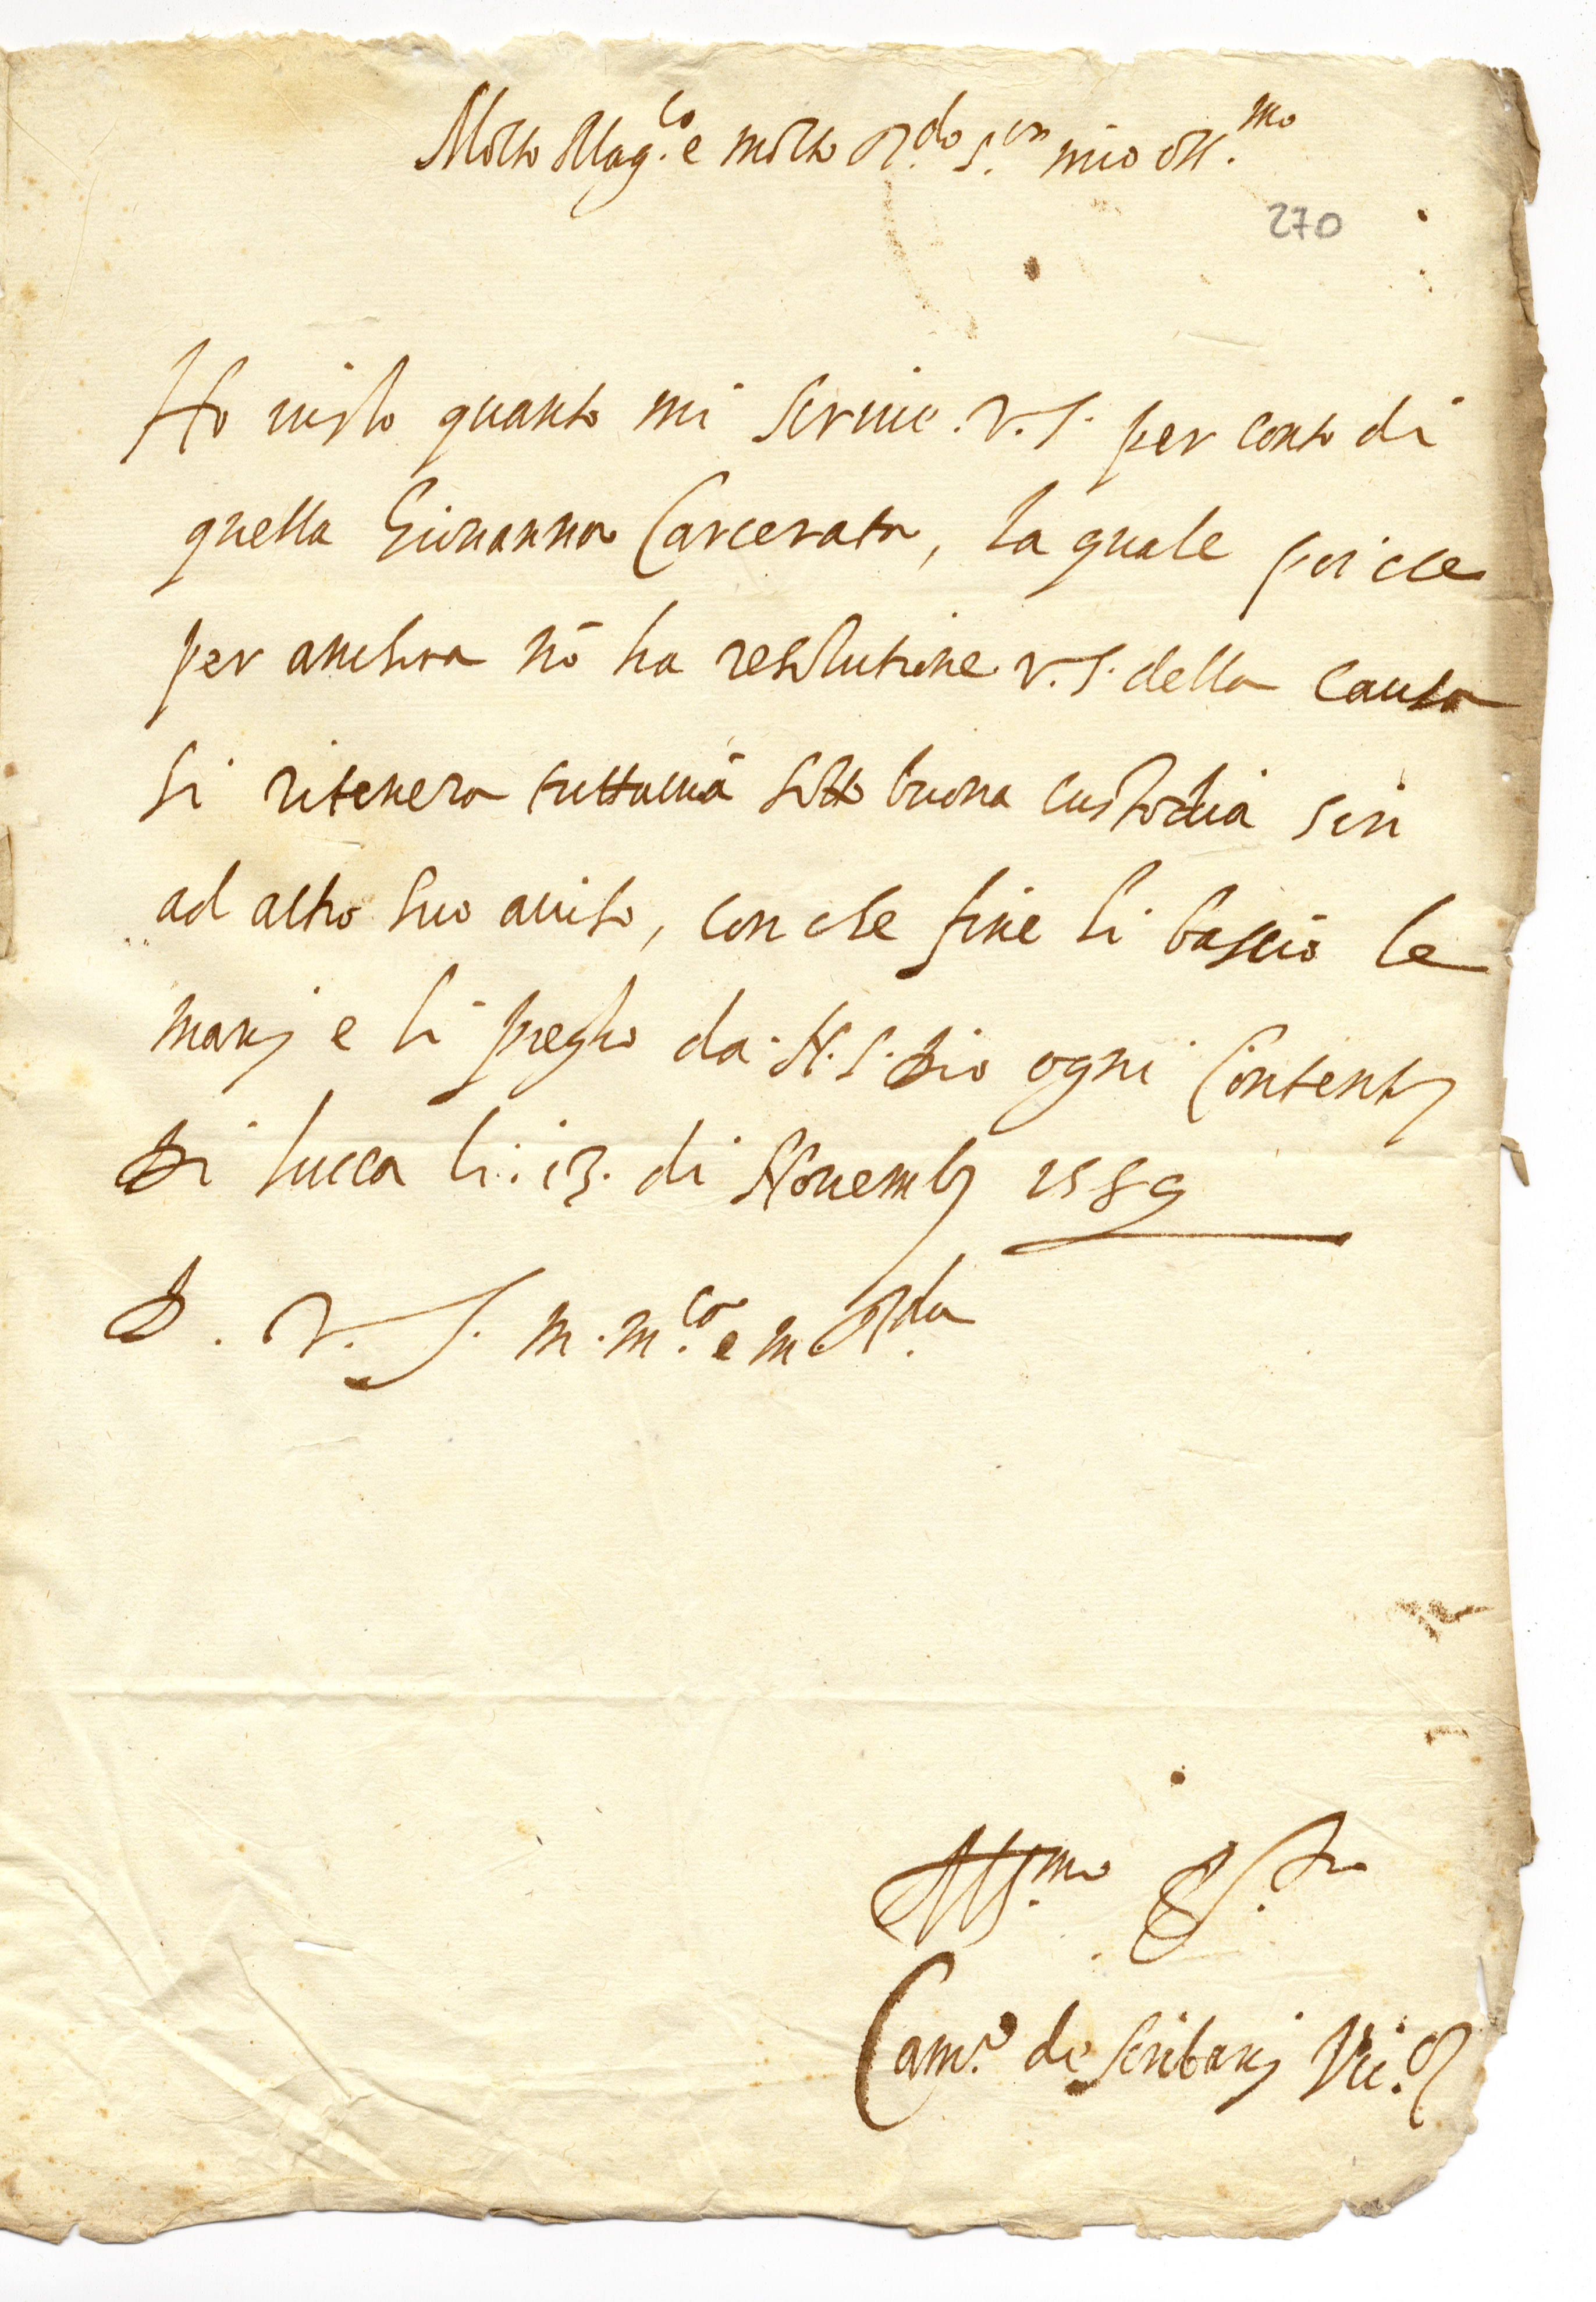 Molto Mag.co e molto R.do S.or mio oss.mo
270
Ho uisto quanto mi scriue .V.S. per conto di
quella Giouanna Carcerata, la quale poi che
per anchora nõ ha resolutione V.S. della causa
si ritenera tuttauia sotto buona custodia sin
ad altro suo auiso, con che fine li bascio le
manj e li pregho da N.S. Dio ogni Contento
Di Lucca li .13. di Nouemb 1589
D. V. S. m. m.co e m R.da
Aff.mo S.re
Cam.o de Scribanj Vic.